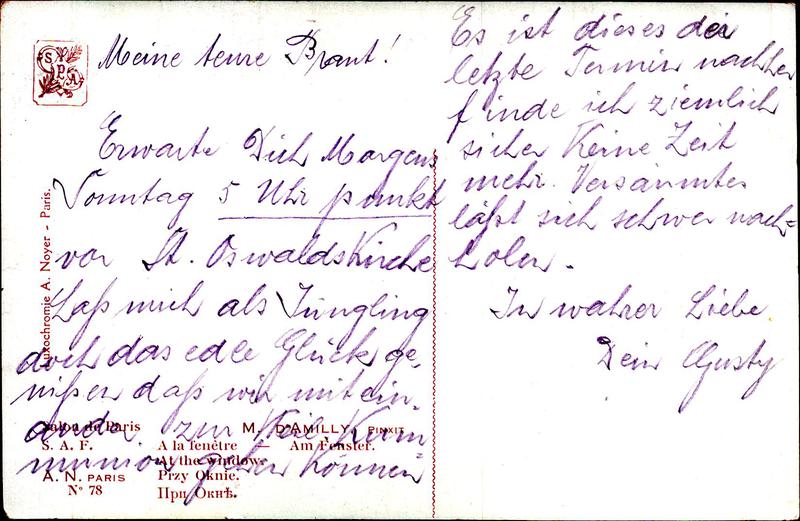 Meine teure Braut!
Erwarte Dich Morgens
Sonntag 5 Uhr punkt
vor St. Oswaldskirche
Laß mich als Jüngling
doch das edle Glück ge-
nißen daß wir mitein-
ander zur Heil Kom
munion gehen können
Es ist dieses der
letzte Termin nachher
finde ich ziemlich
sicher Keine Zeit
mehr. Versäumtes
läßt sich schwer nach=
holen.
In wahrer Liebe
Dein Gusty
SPA
Luxochromie A. Noyer - Paris.
Salon de Paris
S. A. F.
A. N. PARIS
N° 78
M. D'AMILLY, PINXIT
A la fenêtre — Am Fenster.
At the window.
Przy Oknie.
При Окнѣ.